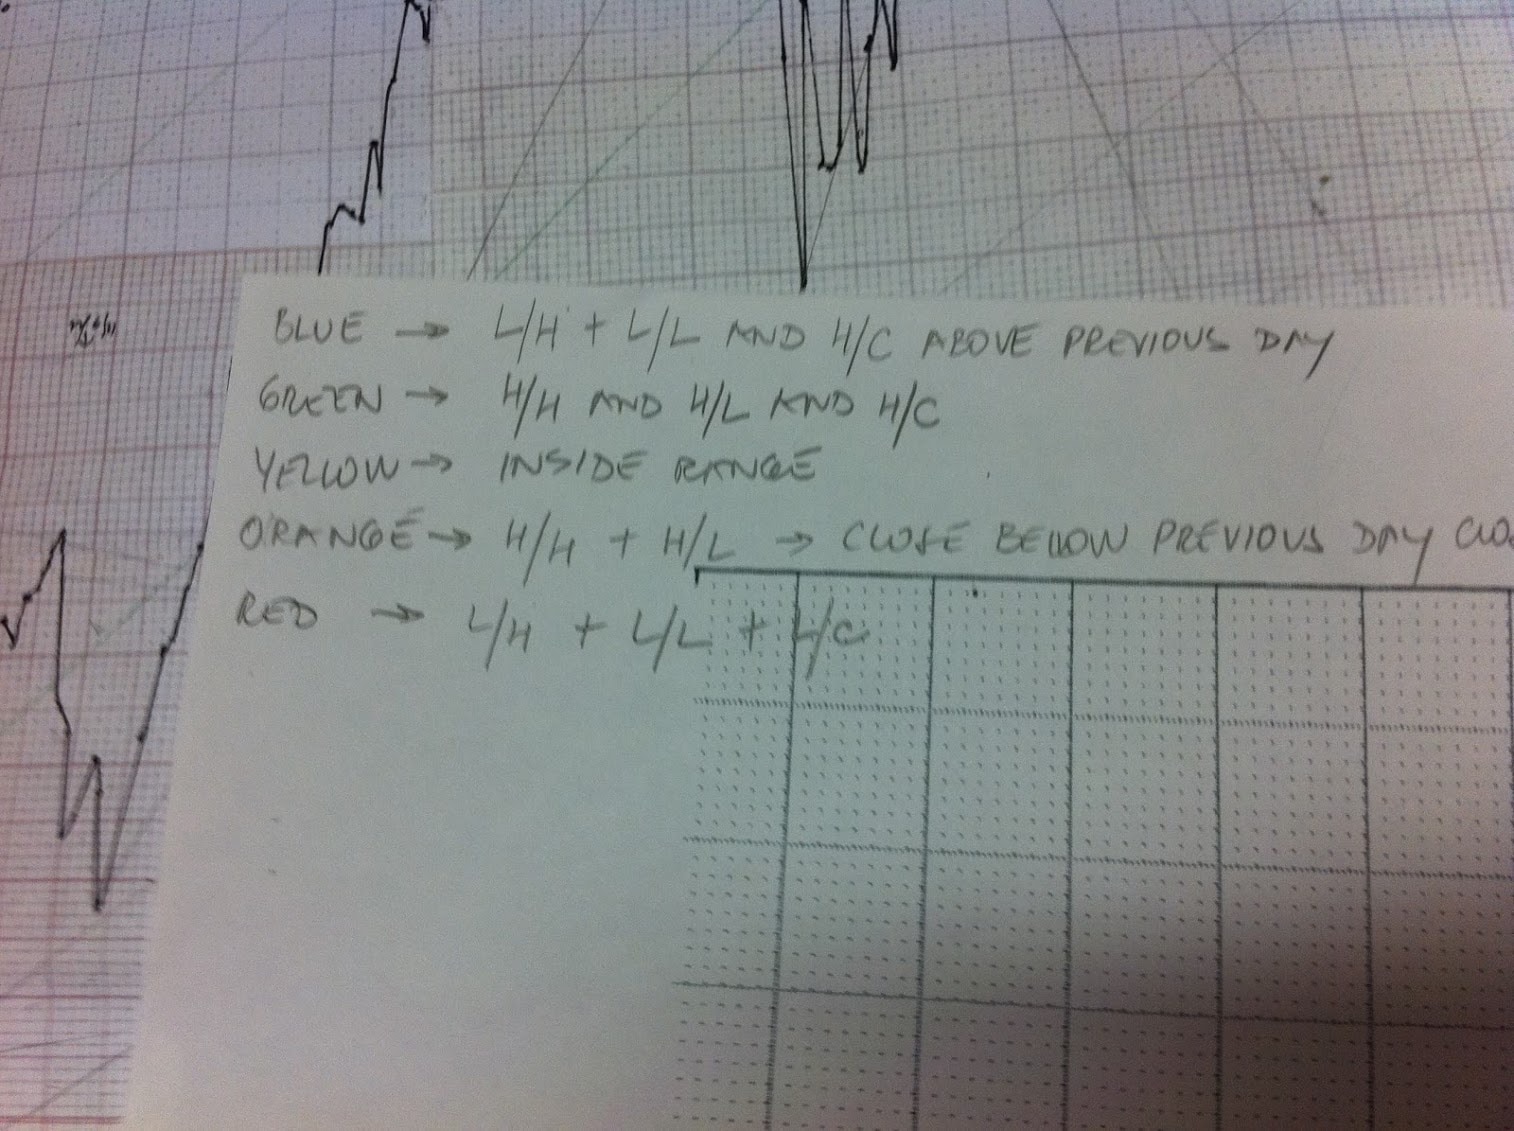 BLUE → L/H + L/L AND H/C ABOVE PREVIOUS DAY
GREEN → H/H AND H/L AND H/C
YELLOW → INSIDE RANGE
ORANGE → H/H + H/L → CLOSE BELLOW PREVIOUS DAY CLOS
RED → L/H + L/L + L/C